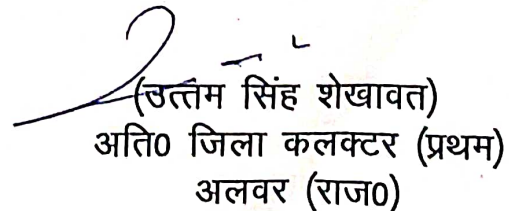 (उत्तम सिंह शेखावत)
अति0 जिला कलक्टर (प्रथम)
अलवर (राज0)